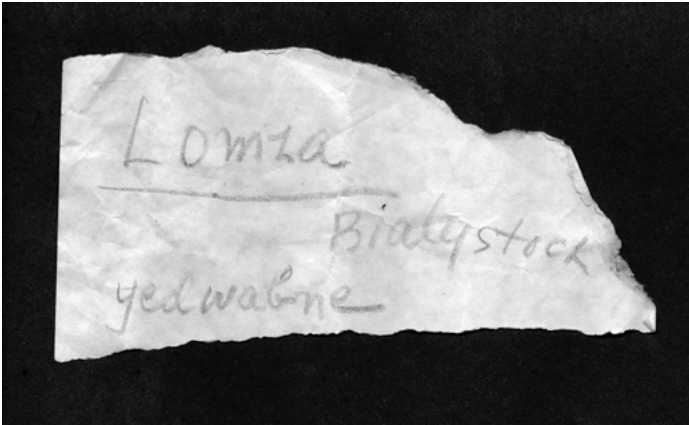 Lomza
Bialystock
yedwabne